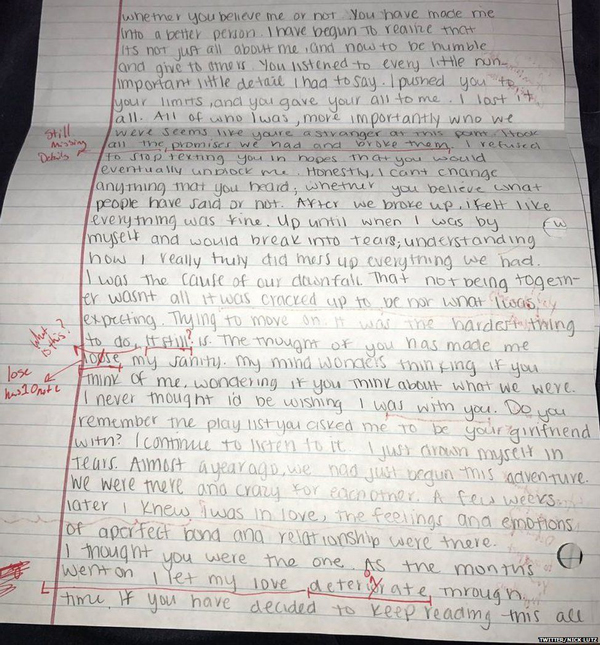 whether you believe me or not. You have made me
into a better person. I have begun to realize that
its not just all about me, and now to be humble
and give to others. You listened to every little nun
important little detail I had to say. I pushed you to
your limits, and you gave your all to me. I lost it
all. All of who I was, more importantly who we
were seems like youre a stranger at this point. I took
Still
missing
Details
all the promises we had and broke them, I refused
to stop texting you in hopes that you would
eventually unblock me. Honestly, I cant change
anything that you heard, whether you believe what
people have said or not. After we broke up, I felt like
everything was fine. Up until when I was by
myself and would break into tears, understanding
how I really truly did mess up everything we had.
I was the cause of our downfall. That not being togeth-
er wasnt all it was cracked up to be nor what I was
expecting. Trying to move on. It was the hardest thing
what
is this?
to do, it still? is. The thought of you has made me
loose my sanity. My mind wonders thinking if you
lose
has 1 O not 2
think of me, wondering if you think about what we were.
I never thought id be wishing I was with you. Do you
remember the play list you asked me to be your girlfriend
with? I continue to listen to it. I just drown myself in
tears. Almost a year ago, we had just begun this adventure.
We were there and crazy for eachother. A few weeks
later I knew I was in love, the feelings and emotions
of a perfect bond and relationship were there.
I thought you were the one. As the months
went on I let my love deteriorate, through
time. If you have decided to keep reading this all
TWITTER/NICK LUTZ